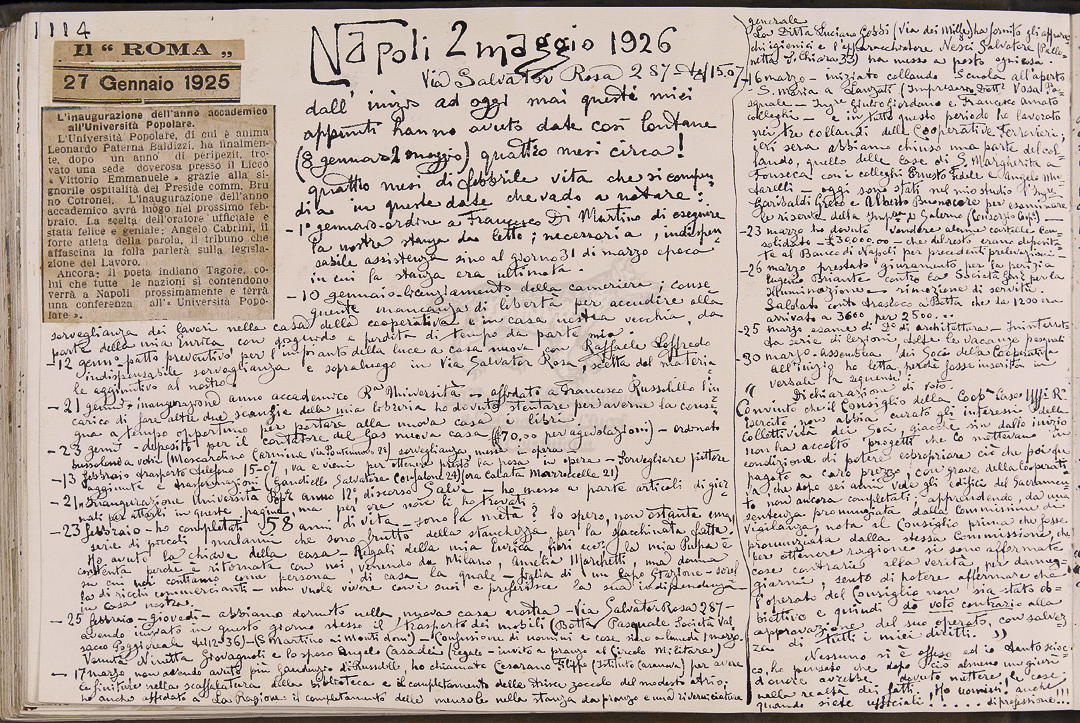 1114
Il "ROMA„
27 Gennaio 1925
L'inaugurazione dell'anno accademico
all'Università Popolare.
L'Università Popolare, di cui è anima
Leonardo Paterna Baldizzi, ha finalmen-
te, dopo un anno di peripezii, tro-
vato una sede doverosa presso il Liceo
« Vittorio Emmanuele » grazie alla si-
gnorile ospitalità del Preside comm. Bru
no Cotronei. L'inaugurazione dell'anno
accademico avrà luogo nel prossimo feb-
braio. La scelta dell'oratore ufficiale e
stata felice e geniale: Angelo Cabrini, il
forte atleta della parola, il tribuno che
affascina la folla parlerà sulla legisla-
zione del Lavoro.
Ancora: il poeta indiano Tagore, co-
lui che tutte le nazioni si contendono
verrà a Napoli prossimamente e terrà
una conferenza all'« Università Popo-
lare ».
Napoli 2 maggio 1926
Via Salvator Rosa 287 - 15.07
dall' inizio ad oggi mai questi miei
appunti hanno avuto date così lontane
(8 gennaio 2 maggio) quattro mesi circa!
quattro mesi di febbrile vita che si compen=
dia in queste date che vado a notare:
- 1° gennaio - ordine a Francesco Di Martino di eseguire
la nostra stanza da letto; necessaria, indispen=
sabile assistenza sino al giorno 31 di marzo epoca
in cui la stanza era ultimata.
- 10 gennaio - licenziamento della cameriera; conse=
guente mancanza di libertà per accudire alla
sorveglianza dei lavori nella casa della cooperativa e in casa nostra vecchia, da
parte della mia Enrica con gogiudo e perdita di tempo da parte mia.
- 12 genn. patto preventivo per l'impianto della luce a casa nuova con Raffaele Loffredo
indispensabile sorveglianza e sopraluogo in Via Salvator Rosa, scelta del materia=
le aggiuntivo al nostro.
- 21 genn. inaugurazione anno accademico Rª Università - affidato a Francesco Russolillo l'in
carico di fare altre due scansie della mia libreria ho dovuto stentare per averne la conse=
gna a tempo opportuno per portare alla nuova casa i libri.
- 23 genn. - deposito per il contatore del Gas nuova casa (£70,00 per agevolazioni) - ordinato
bussolone a vetri (Moscardino Carmine via Pontenuovo 21) sorveglianza, messa in opera -
- 13 febbraio trasporto telefono 15-07, va e vieni per ottenere presto la posa in opera - Sorvegliare pittore
aggiunte e trasformazioni (Gaudiello Salvatore Confalone 24) (ora Calata Marroccelle 21)
- 21 - Inaugurazione Università Popre anno 12° discorso Salvi - ho messo a parte articoli di gior=
nali per attaccarli in queste pagine, ma per ora non le ho trovati
- 23 febbraio - ho completati 58 anni di vita - sono la meta? lo spero, non ostante una
serie di piccoli malanni che sono frutto della stanchezza, per la sfacchinata fatta.
Ho avuto la chiave della casa - Regali della mia Enrica, fiori ecc; la mia Pupa è
contenta perchè è ritornata con noi, venendo da Milano, Amelia Marchetti una donna
su cui noi contiamo come persona di casa la quale - figlia di un capo Stazione - sorel
la di ricchi commercianti - non vuole vivere con suoi e preferisce la sua indipendenza
in casa nostra.
- 25 febbraio - giovedì - abbiamo dormito nella nuova casa nostra - Via Salvator Rosa 287 -
avendo iniziato in questo giorno stesso il trasporto dei mobili (Botta Pasquale Società Val=
sacco Poggioreale tel 12-36) - (S. Martino ai Monti doni) - Confusione di uomini e cose sino a lunedì 1 marzo.
Venuta Ninetta Giovagnoli e lo sposo Angelo Casadei (regalo - invito a pranzo al Circolo Militare)
- 17 marzo non avendo avuto più gaudenzio di Russolillo, ho chiamato Cesarano Filippo (Istituto Casanova) per avere
le finiture nella scaffalatura della biblioteca e il completamento delle disce zoccolo del modesto atrio;
ho anche affidato a La Ragione il completamento delle mensole nella stanza da pranzo e una riverniciatura
generale
La Ditta Luciano Cobbi (Via dei Mille) ha fornito gli apparec=
chi igienici e l'apparecchiatore Nesci Salvatore (Palle=
netta S. Chiara 33) ha messo a posto ogni cosa.
- 16 marzo - iniziato collaudo Scuola all'aperto
- S. Maria a Lauzati (Impresario Dott. Vosa Pa=
squale - Ingri Giulio Giordano e Francesco Amato
colleghi - e in tutto questo periodo ho lavorato
nei tre collaudi delle Cooperative Ferrovieri;
ieri sera abbiamo chiuso una parte del col=
laudo, quello delle case di S. Margherita a
Fonseca con i colleghi Ernesto Fedele e Angelo Mu=
farelli - oggi sono stati nel mio studio l'Ingre
Garibaldi Greco e Alberto Buonocore per esaminare
le riserve della Impsa Di Salerno (Consorzio Coopve) -
- 23 marzo ho dovuto vendere alcune cartelle con=
solidato - £30000.00 - che del resto erano deposita=
te al Banco di Napoli per precedenti prelevazioni -
- 26 marzo prestato giuramento per la perizia
Eugenio Briante contro la Società Gnis per la
Illuminazione - rimozione di servitù -
Saldato conto trasloco a Botta che da 1200 era
arrivato a 3600 per 2500...
- 25 marzo esame di 2° di architettura - Ininterrot=
ta serie di lezioni, dopo le vacanze pasquali
- 30 marzo - Assemblea dei Soci della Cooperativa
all'inizio ho letta perchè fosse inserita in
verbale la seguente
Dichiarazione di voto.
"Convinto che il Consiglio della Coopª Case Uffi Rº
Esercito non abbia curato gli interessi della
collettività dei Soci giacché sin dallo inizio
non ha ascolto progetti che lo mettevano in
condizione di potere espropriare ciò che poi ha
pagato a caro prezzo, con grave della Cooperati=
va, che dopo sei anni vede gli edifici del Sacramen=
to non ancora completati; apprendendo, da una
sentenza pronunziata dalla Commissione di
Vigilanza, nota al Consiglio prima che fosse
pronunziata dalla stessa Commissione, che
per ottenere ragione si sono affermate
cose contrarie alla verità, per danneg=
giarmi, sento di potere affermare che
l'operato del Consiglio non sia stato ob=
biettivo e quindi do voto contrario alla
approvazione del suo operato, con salvez=
za di tutti i miei diritti."
Nessuno si è offeso ed io tanto scioc=
co, ho pensato che dopo ciò almeno un giuri
d'onore avrebbe dovuto mettere le cose
nella realtà dei fatti. Ho uomini! anche
quando siete ufficiali!..... di professione!!!